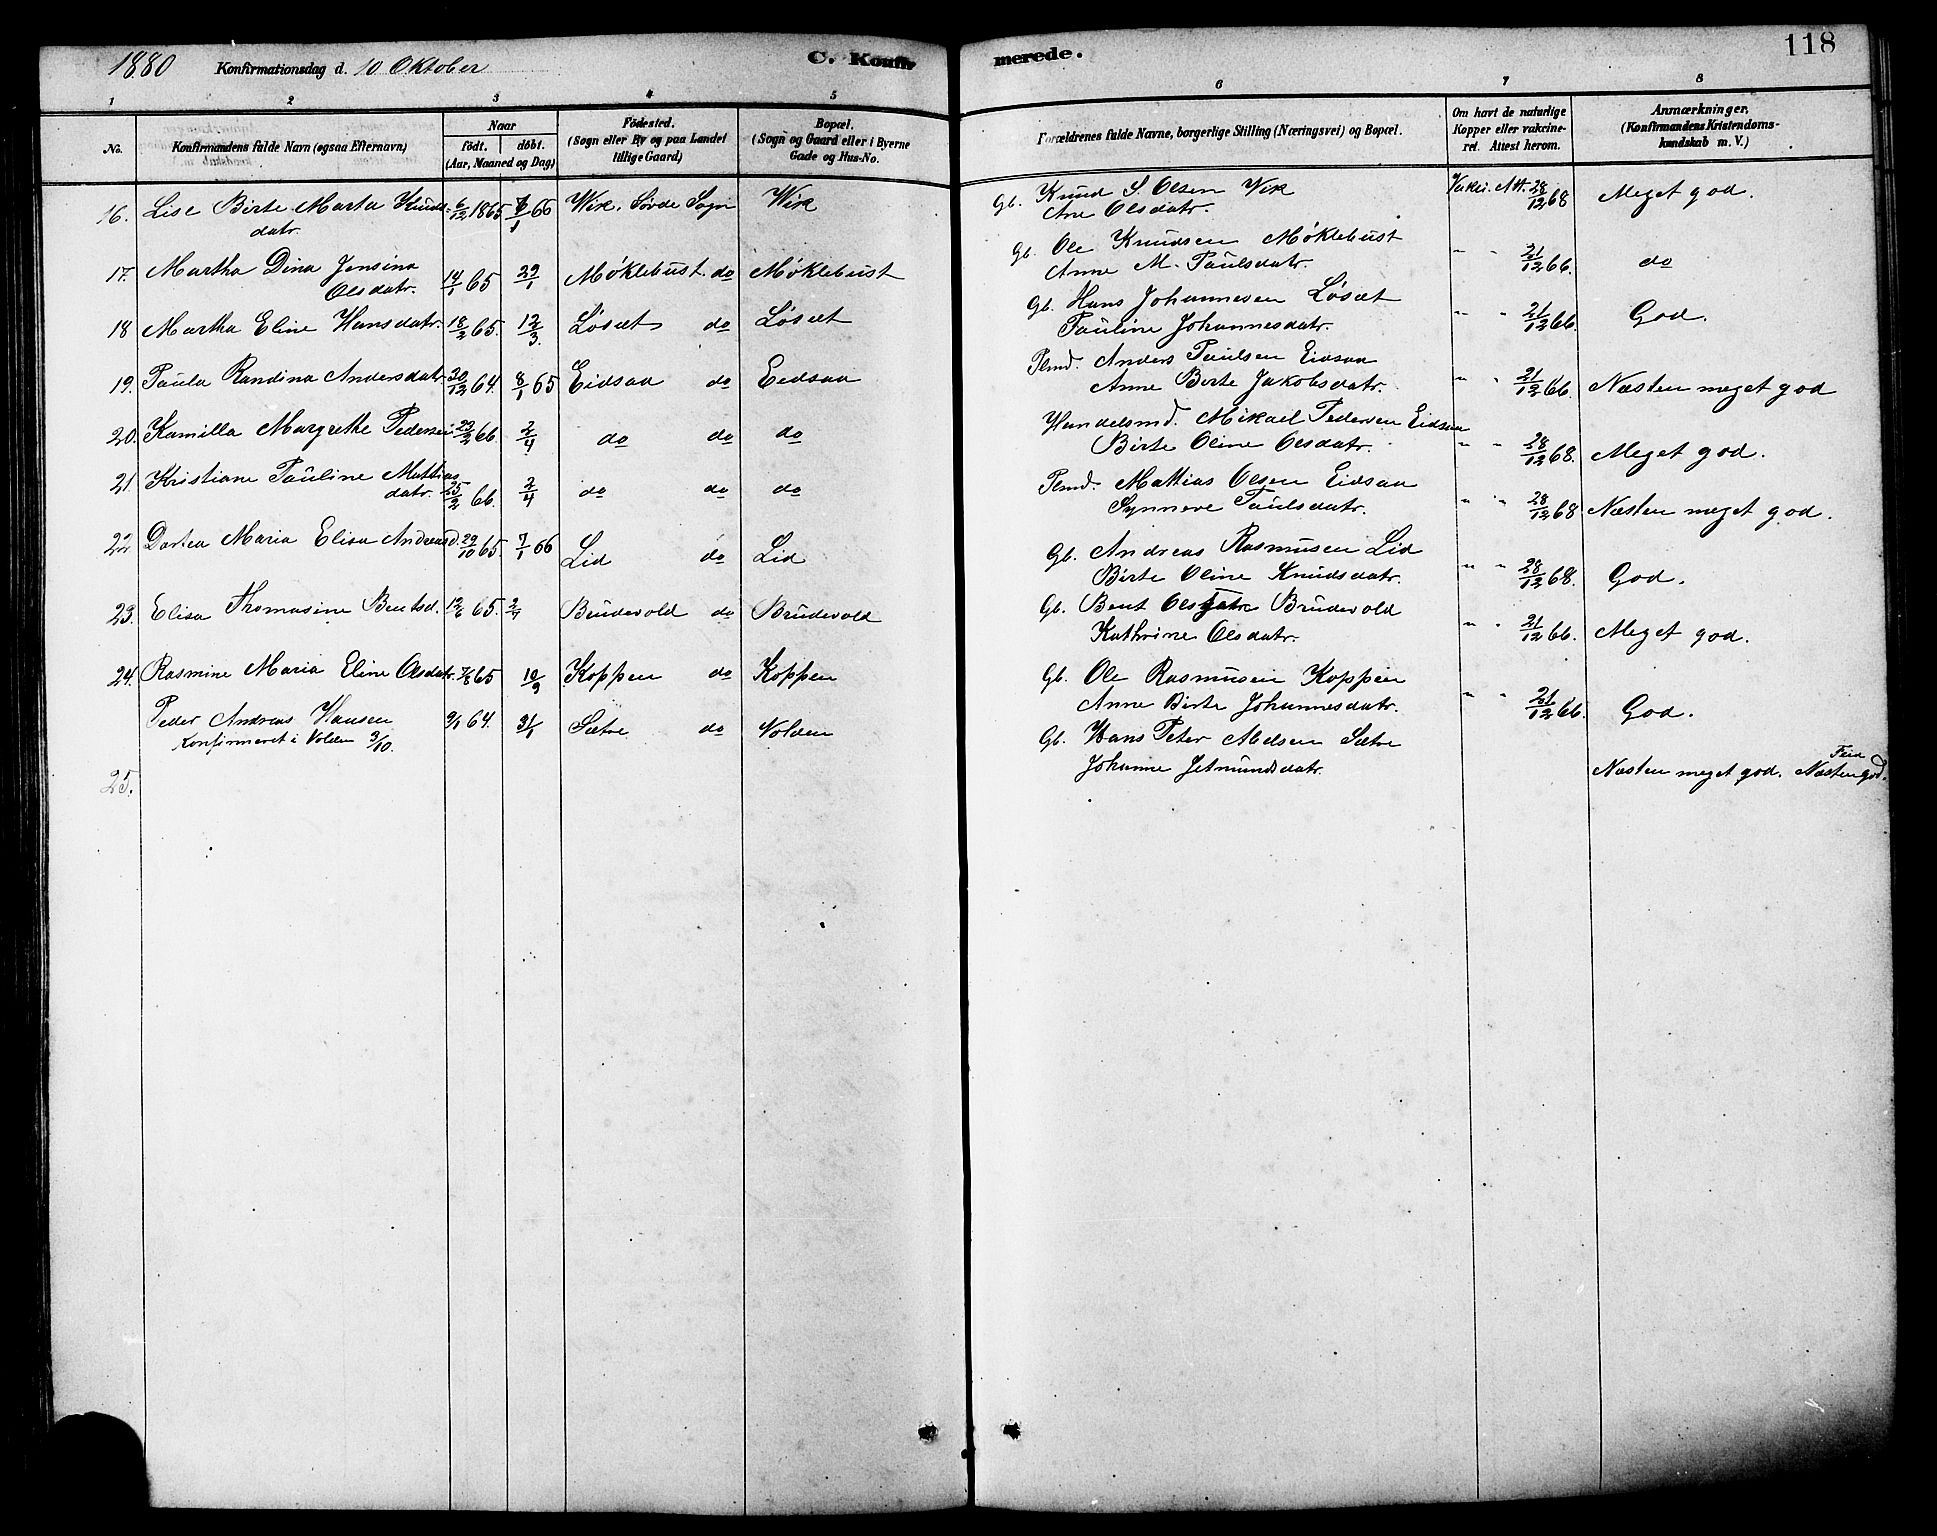 1880 Konfirmationsdag d. 10 Oktober C. Konfir merede. 118
1 2 3 4 5 6 7 8
No. Konfirmandens fulde Navn (ogsaa Efternavn) Naar födt. döbt. (Aar, Maaned og Dag) Födested. (Sogn eller By og paa Landet tillige Gaard) Bopæl. (Sogn og Gaard eller i Byerne Gade og Hus-No. Forældrenes fulde Navne, borgerlige Stilling (Næringsvei) og Bopæl. Om havt de naturlige Kopper eller vakcineret. Attest herom. Anmærkninger, (Konfirmandens Kristendomskundskab m. V.)
16. Lise Birte Marta Knuds- 6/12 1865 6/1 66 Wik. Sövde Sogn Wik Gb. Knud S. Olsen Wik Vakci. Att. 28/12 68 Meget god.
datr. Ane Olsdatr.
17. Martha Dina Jensina 14/1 65 29/1 Möklebust. do Möklebust Gb. Ole Knudsen Möklebust " " 21/12 66. do
Olsdatr. Anne M. Paulsdatr.
18 Martha Eline Hansdatr. 18/2 65. 12/3. Löset do Löset Gb. Hans Johannesen Löset " " 21/12 66. God.
Pauline Johannesdatr.
19. Paula Randina Andersdatr 20/12 64. 8/1 65 Eidsaa do Eidsaa Plmd. Anders Paulsen Eidsaa " " 21/12 66. Næsten meget god
Anne Birte Jakobsdatr.
20. Kamilla Margrethe Pedersen 22/2 66 2/4 do do do Handelsmd. Mikael Pedersen Eidsaa " " 28/12 68. Meget god.
Birte Oline Olsdatr.
21. Kristiane Pauline Mattias 25/2 66. 2/4 do do do Plmd. Mattias Olsen Eidsaa " " 28/12 68 Næsten meget god.
datr. Synneve Paulsdatr.
22 Dortea Maria Elisa Andreasd. 29/10 65 7/1 66 Lid do Lid Gb. Andreas Rasmusen Lid " " 28/12 68. God.
Birte Oline Knudsdatr.
23. Elisa Thomasine Bentsd. 12/6 65. 2/7 Brudevold do Brudevold Gb. Bent Brudevold " " 21/12 66. Meget god.
Kathrine Olsdatr.
24. Rasmine Maria Eline Olsdatr. 7/8 65 10/9 Koppen do Koppen Gb. Ole Rasmusen Koppen " " 21/12 66. God.
Anne Birte Johannesdatr.
Peder Andreas Hansen 9/1 64. 31/1 Sætre do Volden Gb. Hans Peter Abelsen Sætre
Konfirmeret i Volden 3/10. Johanne Jetmundsdatr. Næsten meget god. Næsten god.
25.